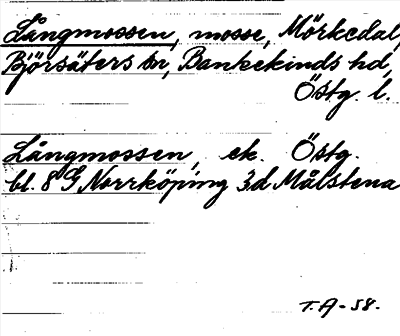 Långmossen, mosse, Mörkedal,
Björsäters sn, Bankekinds hd,
Östg. l.
Långmossen, ek. Östg.
bl. 8 G Norrköping 3d Målstena
T.A-58.